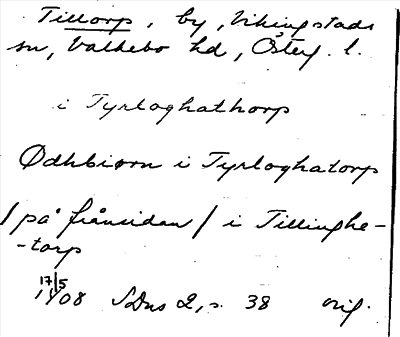 Tillorp, by, Vikingstads
sn, Valkebo hd, Österg. l.
i Tyrloghathorp
Ødhbiorn i Tyrloghatorp
/på frånsidan/ i Tillinghe-
-torp
17/5 1408 SDns 2, s. 38 orig.